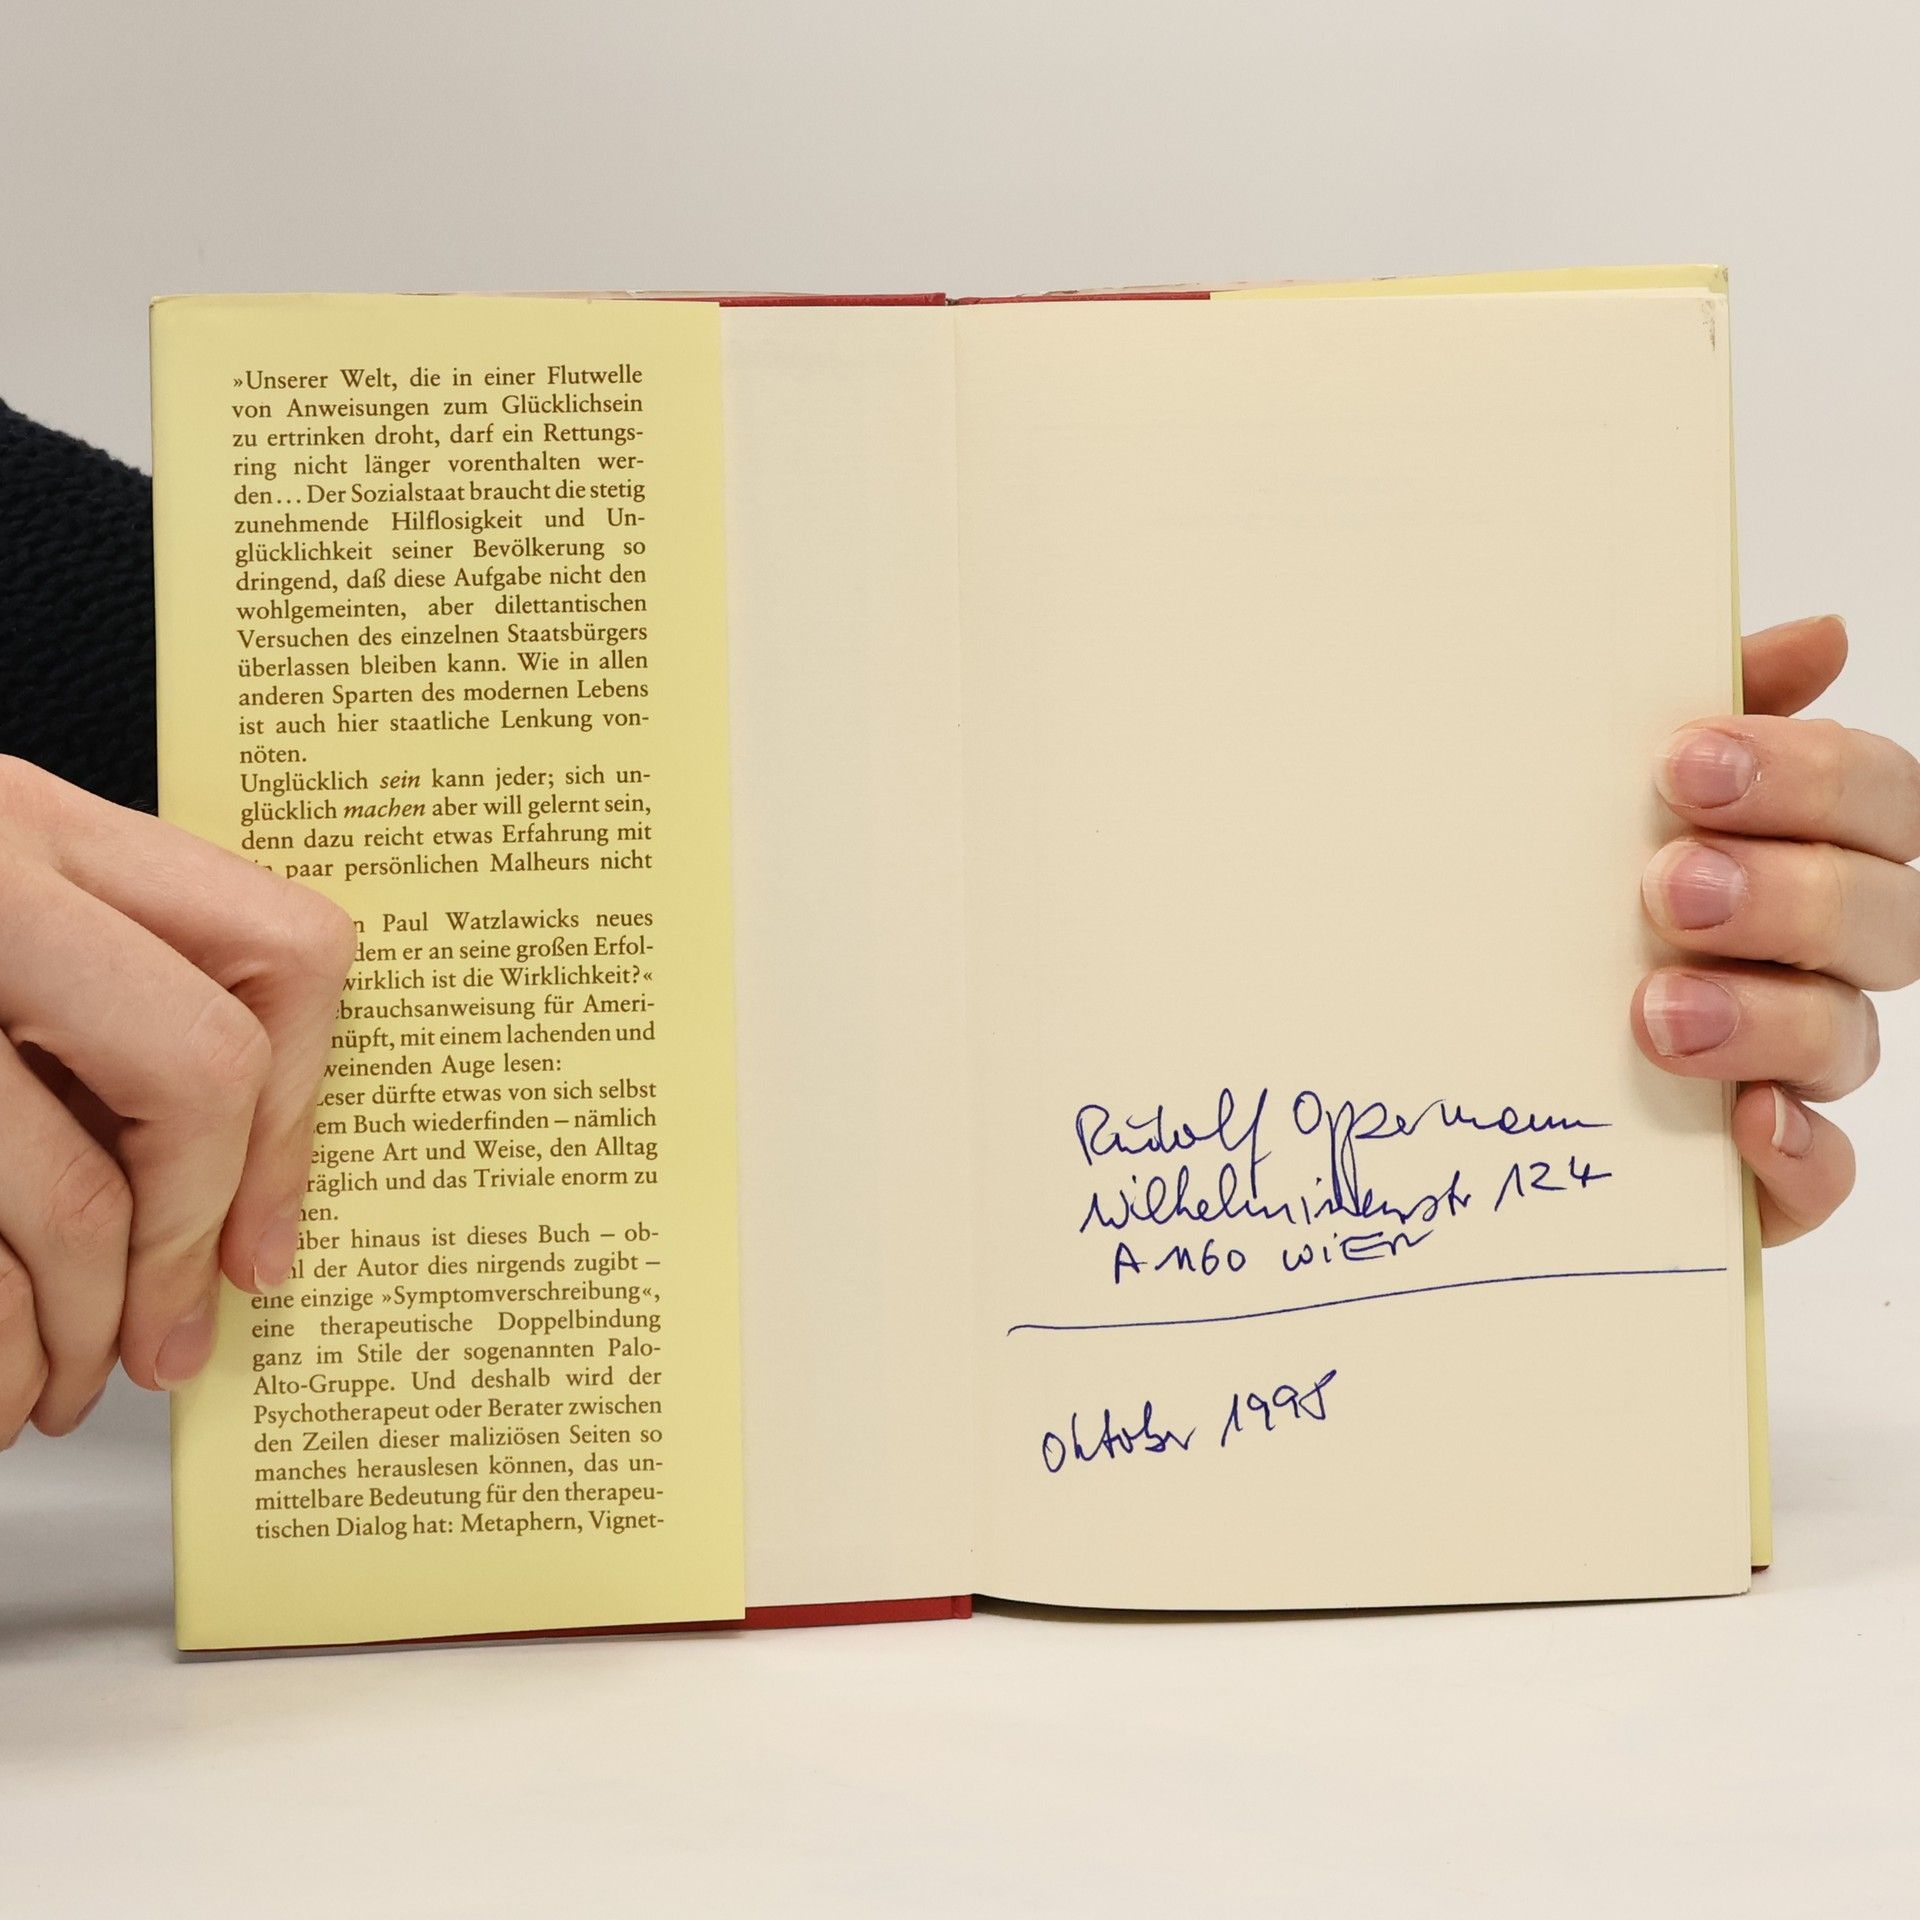 »Unserer Welt, die in einer Flutwelle
von Anweisungen zum Glücklichsein
zu ertrinken droht, darf ein Rettungs-
ring nicht länger vorenthalten wer-
den... Der Sozialstaat braucht die stetig
zunehmende Hilflosigkeit und Un-
glücklichkeit seiner Bevölkerung so
dringend, daß diese Aufgabe nicht den
wohlgemeinten, aber dilettantischen
Versuchen des einzelnen Staatsbürgers
überlassen bleiben kann. Wie in allen
anderen Sparten des modernen Lebens
ist auch hier staatliche Lenkung von-
nöten.
Unglücklich sein kann jeder; sich un-
glücklich machen aber will gelernt sein,
denn dazu reicht etwas Erfahrung mit
paar persönlichen Malheurs nicht
Paul Watzlawicks neues
dem er an seine großen Erfol-
wirklich ist die Wirklichkeit?«
brauchsanweisung für Ameri-
nüpft, mit einem lachenden und
weinenden Auge lesen:
Leser dürfte etwas von sich selbst
em Buch wiederfinden – nämlich
eigene Art und Weise, den Alltag
räglich und das Triviale enorm zu
hen.
über hinaus ist dieses Buch – ob-
hl der Autor dies nirgends zugibt –
eine einzige »Symptomverschreibung«,
eine therapeutische Doppelbindung
ganz im Stile der sogenannten Palo-
Alto-Gruppe. Und deshalb wird der
Psychotherapeut oder Berater zwischen
den Zeilen dieser maliziösen Seiten so
manches herauslesen können, das un-
mittelbare Bedeutung für den therapeu-
tischen Dialog hat: Metaphern, Vignet-
Rudolf Oppermann
Wilhelminenstr 124
A 1160 WIEN
Oktober 1998